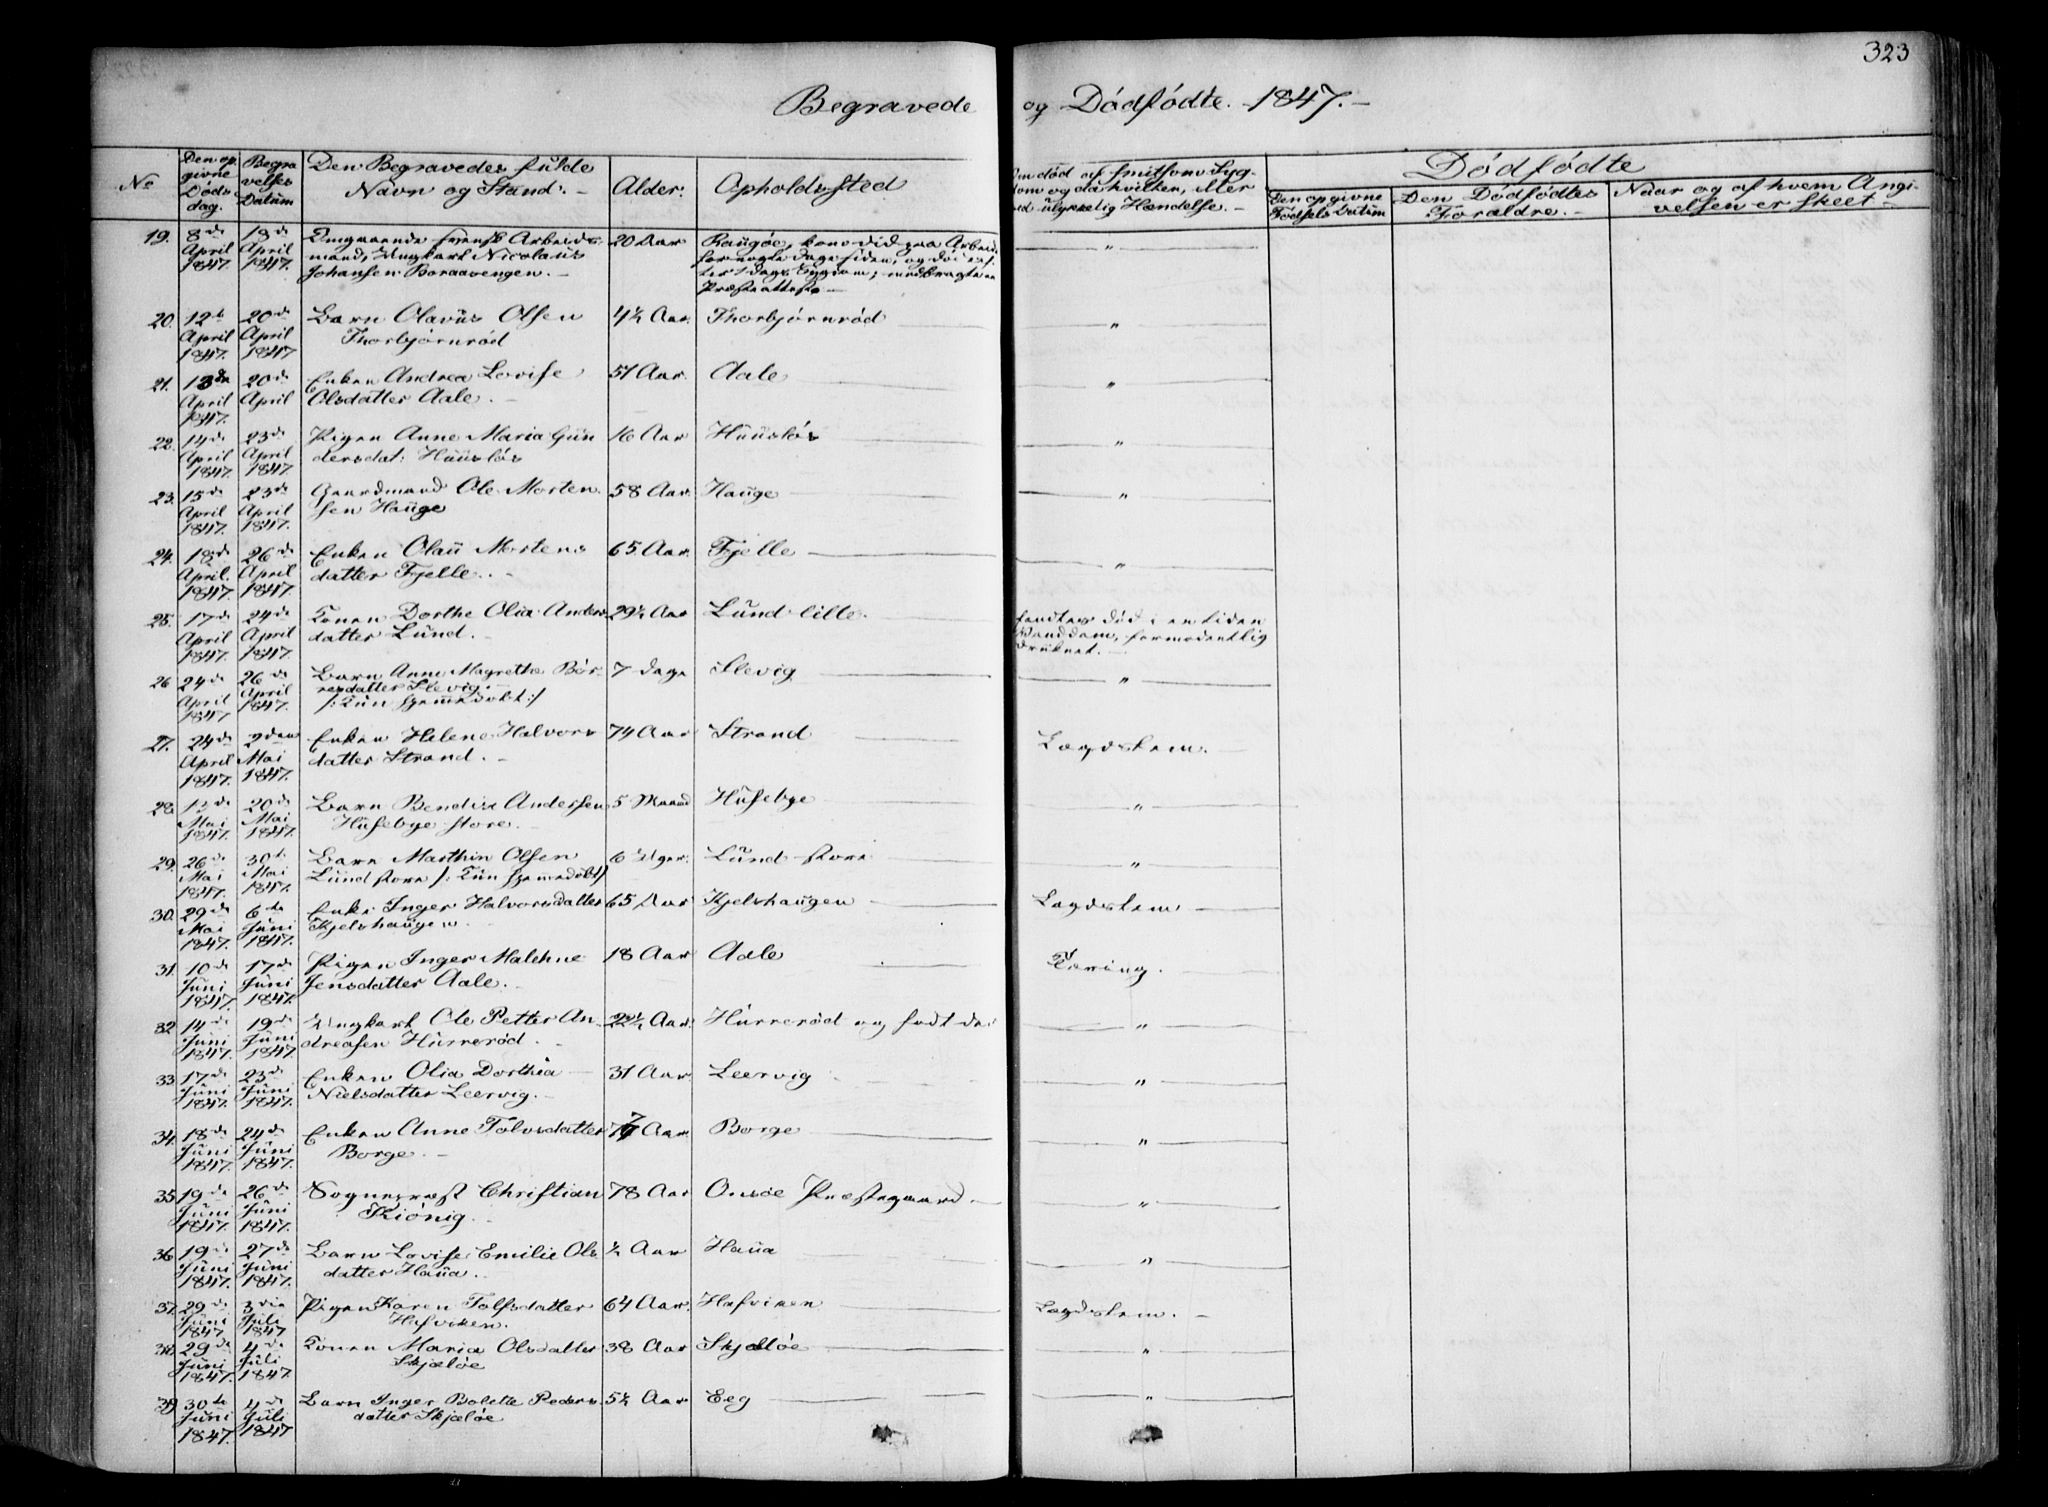 323
Begravede og Dödfödte. 1847.
No
Den opgivne Dödsdag.
Begravelses Datum
Den Begravedes fulde Navn og Stand:
Alder:
Opholdssted
Om död af smitsom Sygdom og da hvilken, eller ved ulykkelig Hændelse.
Dödfödte
Den opgivne Födsels Datum
Den Dödfödtes Forældre.
Naar og af hvem Angivelsen er skeet
19. 8de April 1847. 18de April 1847. svensk Arbeidsmand, Ungkarl Nicolaus Johansen 20 Aar Raugöe, kom did paa Arbeide for nogle Dage siden, og döi Dags Sygdom; medbragte en Præsteattest "
20. 12te April 1847. 20de April 1847 Barn Olavus Olsen Thorbjörnröd 4½ Aar. Thorbjörnröd "
21. 13de April 1847. 20de April Enken Andrea Lovise Olsdatter Aale. 57 Aar. Aale "
22. 14de April 1847. 23de April 1847. Pigen Anne Maria Gundersdat: Huuslös 16 Aar Huuslös "
23. 15de April 1847. 23de April 1847. Gaardmand Ole Mortensen Hauge 58 Aar. Hauge "
24. 18de April. 1847. 26de April 1847. Enken Olau Mortensdatter Fjelle. 65 Aar. Fjelle "
25. 17de April 1847. 24de April 1847. Konen Dorthe Olia Andersdatter Lund. 29½ Aar Lund lille. fandtes död i en liden Vanddam, formodentlig druknet.
26 24de April 1847 26de April 1847. Barn Anne Magrethe Börresdatter Slevig. /: Kun hjemmedöbt :/ 7 Dage Slevig "
27. 24de April 1847. 2den Mai 1847. Enken Helene Halvorsdatter Strand. 74 Aar Strand Lagdslem.
28. 12de Mai 1847. 20de Mai 1847. Barn Bendix Andersen Husebye store. 5 Maand Husebye "
29. 26de Mai 1847. 30te Mai 1847. Barn Marthin Olsen Lund store /: Kun hjemmedöbt :/ 6 Uger. Lund store "
30. 29de Mai 1847. 6te Juni 1847. Enke Inger Halvorsdatter Kjelshaugen. 65 Aar Kjelshaugen Lagdslem
31. 10de Juni 1847. 17de Juni 1847. Pigen Inger Malehne Jensdatter Aale. 18 Aar Aale Tæring.
32 14de Juni 1847. 19de Juni 1847 Ungkarl Ole Petter Andreasen Hurreröd. 22½ Aar. Hurreröd og födt der "
33 17de Juni 1847. 23de Juni 1847. Enken Olia Dorthia Nielsdatter Leervig. 31 Aar Leervig "
34. 18de Juni 1847. 24de Juni 1847. Enken Anne Tolvsdatter Borge. 77 Aar Borge "
35 19de Juni 1847. 26de Juni 1847. Sognepræst Christian Kiönig. 78 Aar Onsöe Præstegaard "
36 19de Juni 1847. 27de Juni 1847. Barn Lovise Emilie Olsdatter Haua. ½ Aar Haua "
37. 29de Juni 1847 3die Juli 1847 Pigen Karen Tolfsdatter Hafviken. 64 Aar. Hafviken Lagdslem.
38. 29de Juni 1847. 4de Juli 1847 Konen Maria Olsdatter Skjælöe 38 Aar Skjælöe "
39 30te Juni 1847. 4de Juli 1847 Barn Inger Bolette Pedersdatter Skjælöe 5½ Aar Eeg "